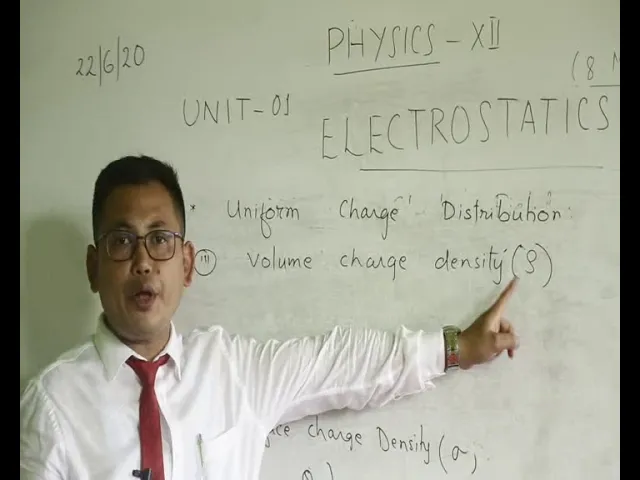 22/6/20
PHYSICS - XII
(8
UNIT-01
ELECTROSTATICS
* Uniform Charge Distribution:
(iii) Volume charge density (ρ)
charge Density (σ,